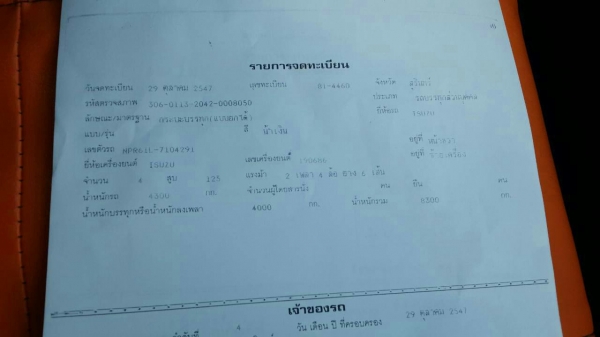 รายการจดทะเบียน
วันจดทะเบียน 29 ตุลาคม 2547 เลขทะเบียน 81-4460 จังหวัด
รหัสตรวจสภาพ 306-0113-2047-0008050 ประเภท
ลักษณะ/มาตรฐาน สี น้ำเงิน ยี่ห้อรถ ISUZU
แบบ/รุ่น
เลขตัวรถ NPR61L-7104791 อยู่ที่ หน้าขวา
ยี่ห้อเครื่องยนต์ ISUZU เลขเครื่องยนต์ อยู่ที่
จำนวน 4 สูบ 125 แรงม้า 2 เพลา 6 ล้อ ยาง 6 เส้น
น้ำหนักรถ 4300 กก. จำนวนผู้โดยสารนั่ง คน ยืน คน
น้ำหนักบรรทุกหรือน้ำหนักลงเพลา 4000 กก. น้ำหนักรวม 8300 กก.
เจ้าของรถ
4 วัน เดือน ปี ที่ครอบครอง 29 ตุลาคม 2547